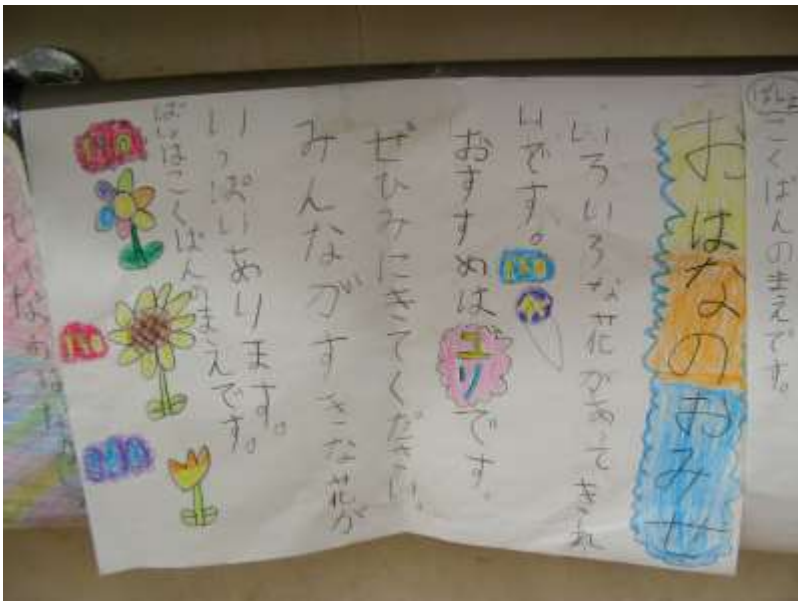 ばしょ
こくばんのまえです。
おはなのおみせ
いろいろな花があってきれ
いです。
おすすめはユリです。
ぜひみにきてください。
みんながすきな花が
いっぱいあります。
ばしょはこくばんのまえです。